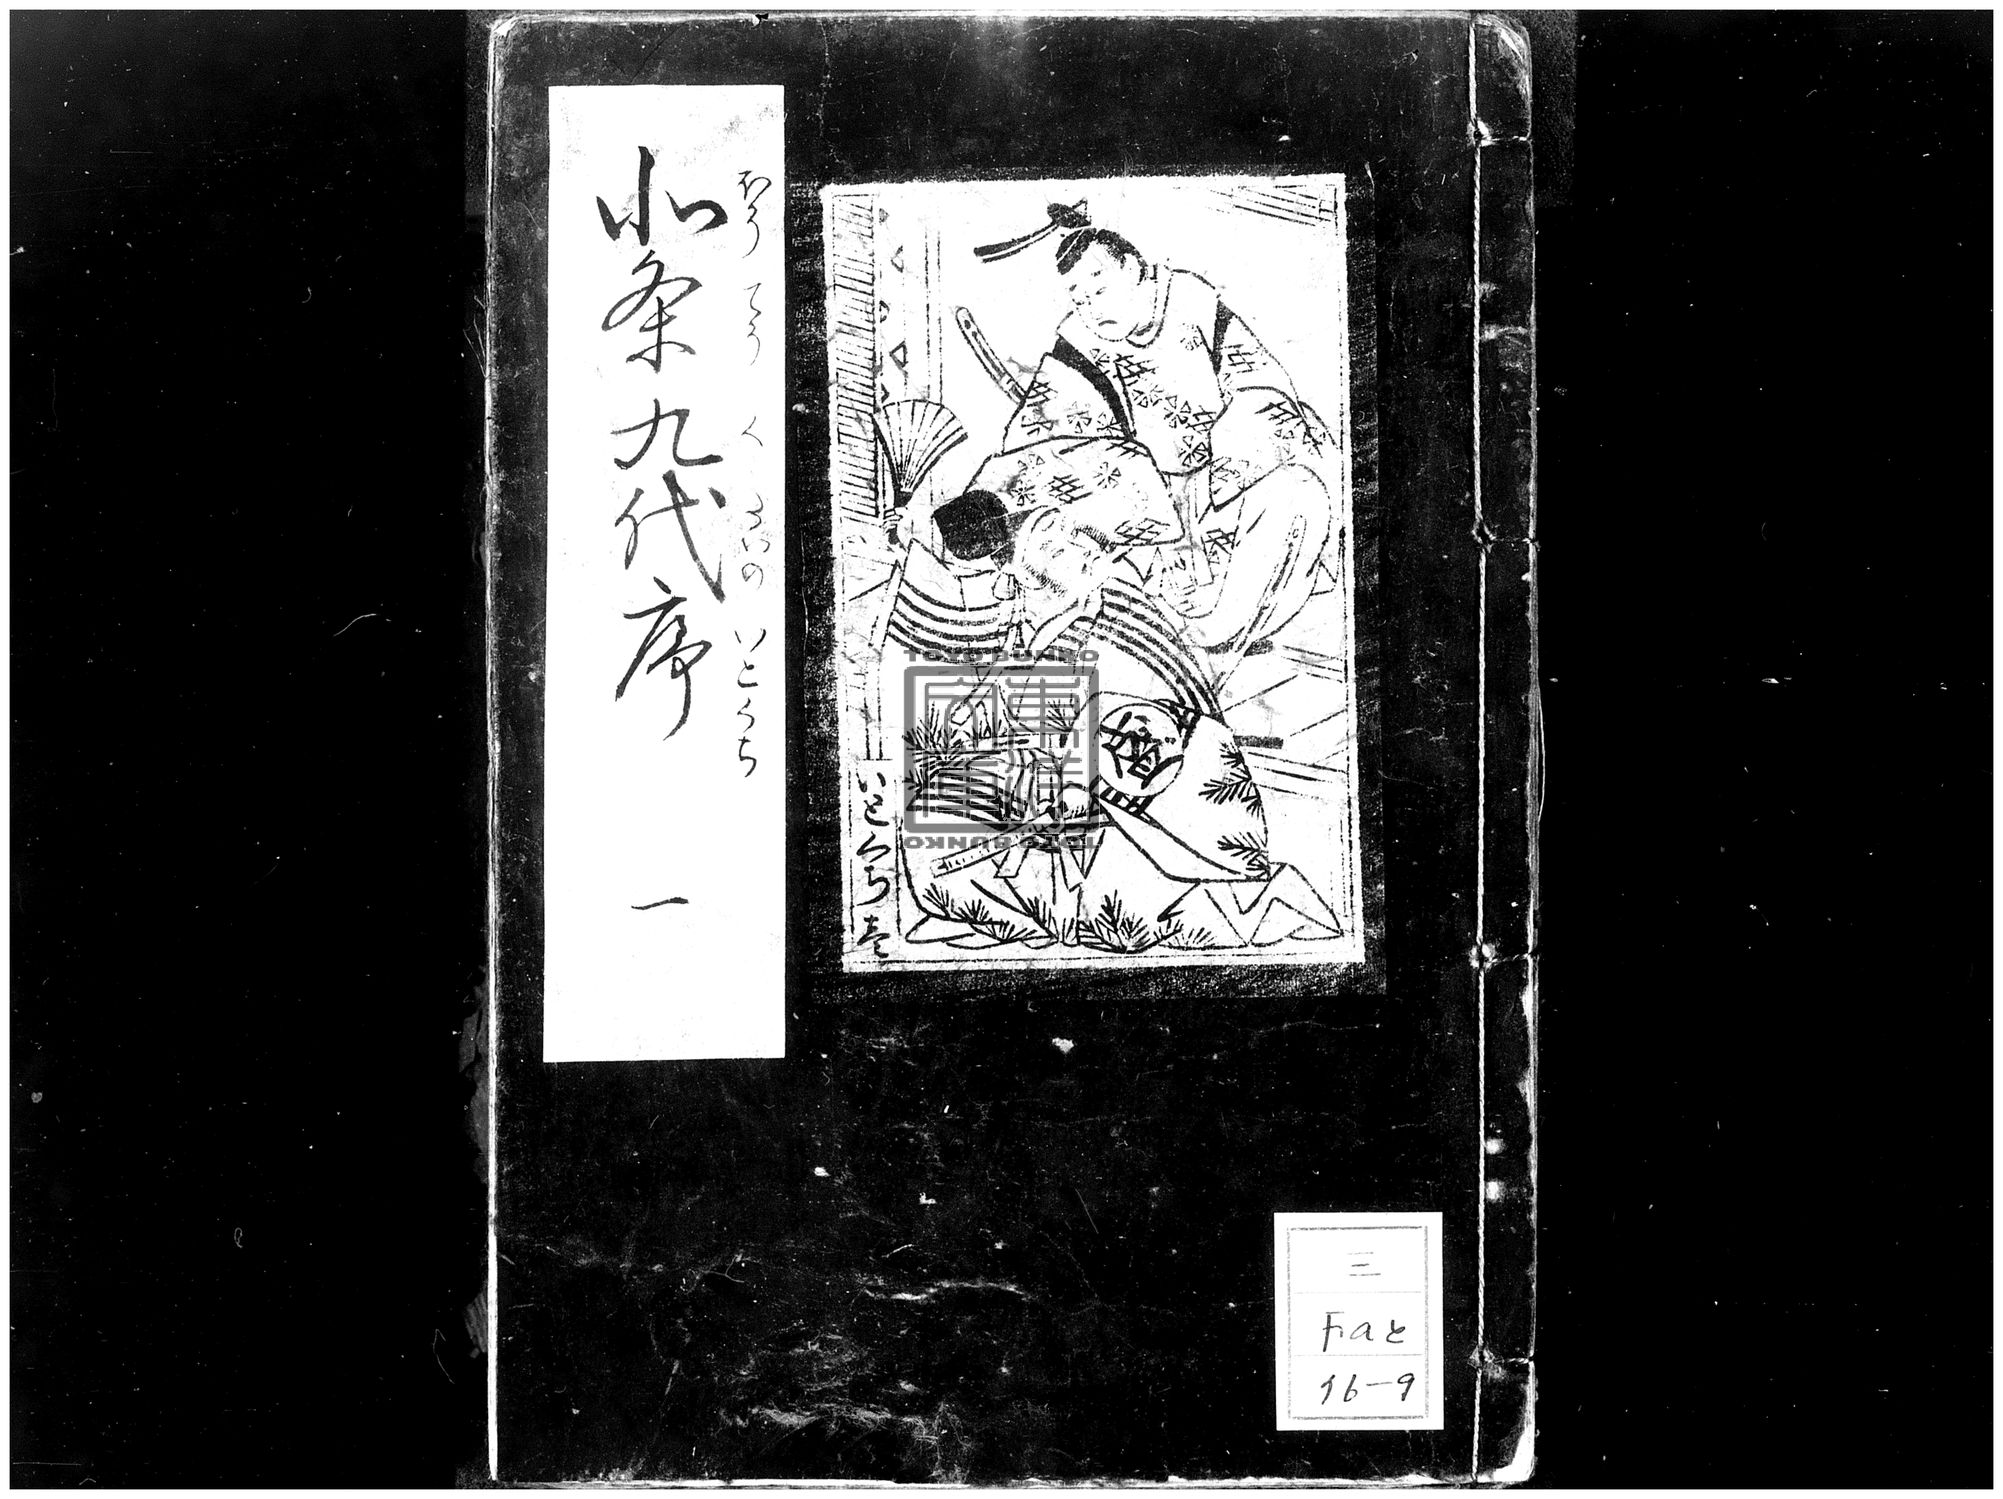 ほうてうくだいのいとくち
北条九代序
一
いとくち 壱
TOYO BUNKO
東洋文庫
TOYO BUNKO
三
Faと
16-9